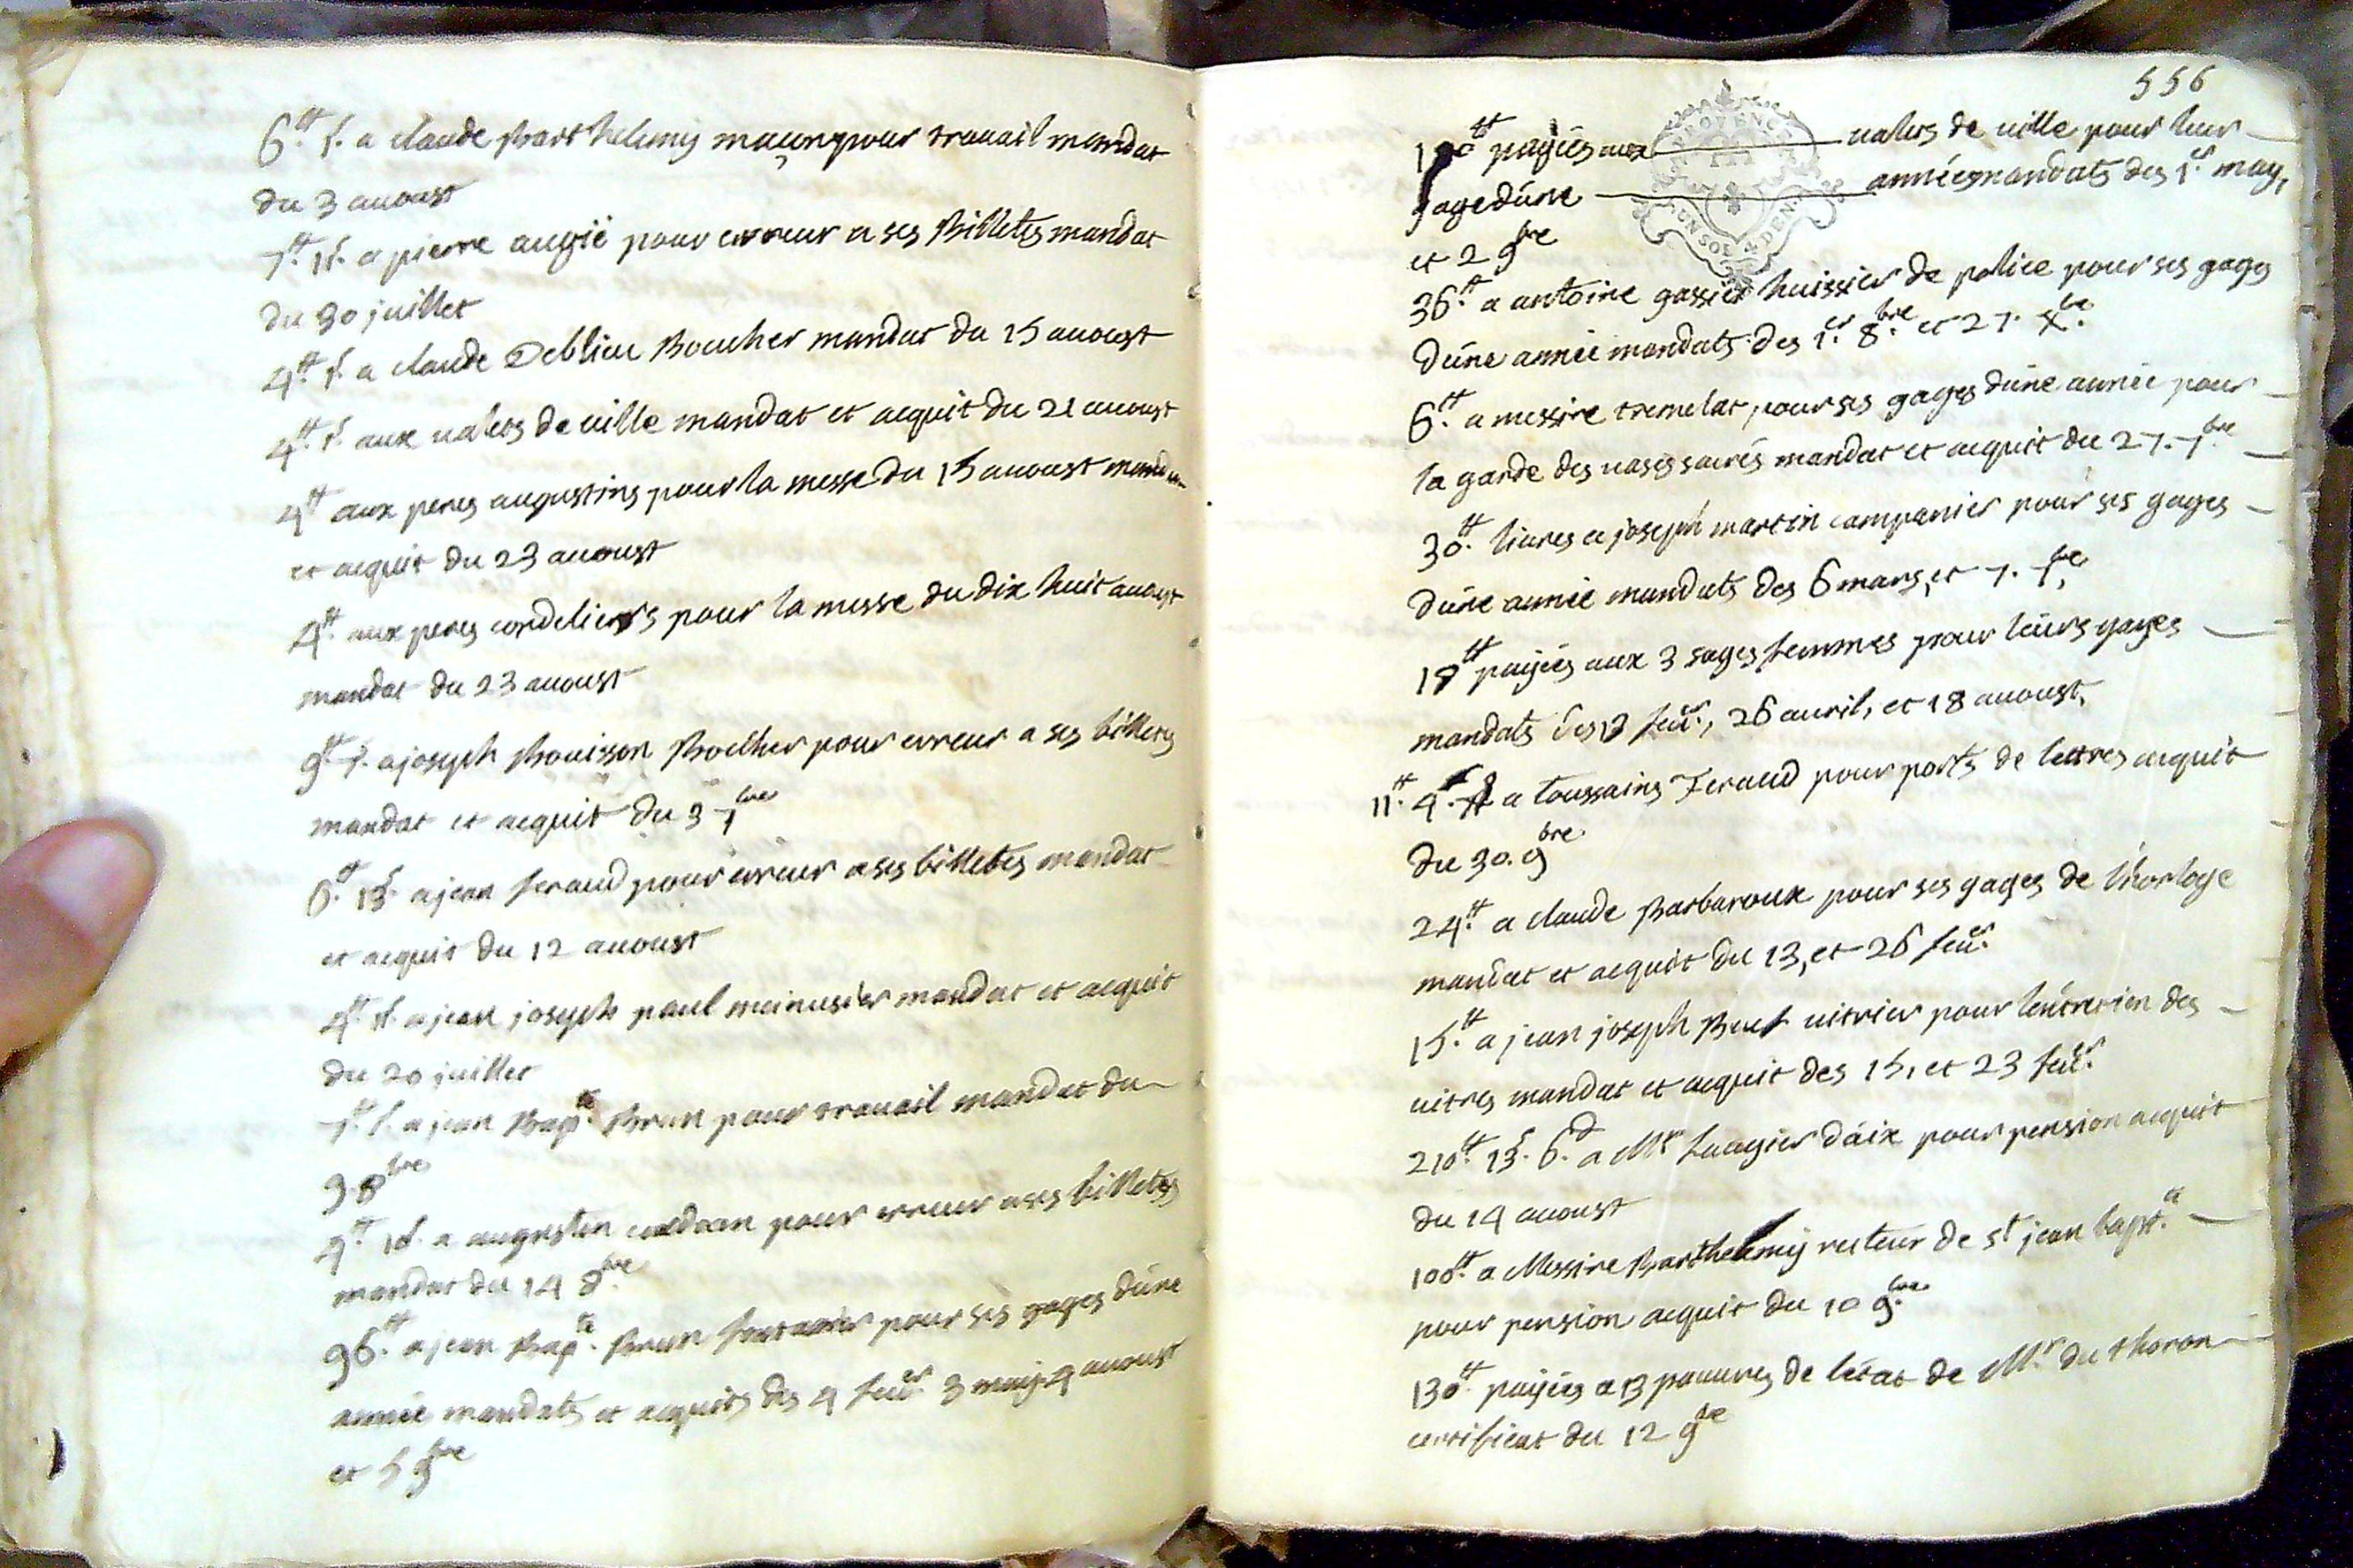 6.tt s. a claude Barthelemy maçon pour trauail mandat
du 3 auoust
7.tt 1s. a pierre augié pour erreur a ses Billetes mandat
du 30 juillet
4.tt s. a claude Deblieu Boucher mandat du 15 auoust
4.tt s. aux ualets de uille mandat et acquit du 21 auoust
4tt aux peres augustins pour la messe du 15 auoust
et acquit du 23 auoust
4.tt aux peres cordeliers pour la messe du dix huit auoust
mandat du 23 auoust
9.tt s. a joseph Bouisson Boucher pour erreur a ses billetes
mandat et acquit du 3 7bre
6.tt 13s. a jean feraud pour erreur a ses billetes mandat
et acquit du 12 auoust
4.tt s. a jean joseph paul meinusier mandat et acquit
du 20 juillet
7.tt s. a jean Bap.te Brun pour trauail mandat du
9 8bre
4.tt 1s. a augustin pour erreur a ses billetes
mandat du 14 8bre
96.tt a jean Bap.te Brun fontanier pour ses gages dúne
année mandats et acquits des 4 feu.er 3 may 4 auoust
et 5 9bre
556
PROVENCE
UN SOL 4 DEN.
payées aux ualets de uille pour leur
gage dúne année mandats des 1.er may,
et 2 9bre
36.tt a antoine gassier huissier de police pour ses gages
dúne année mandats des 1.er 8.bre et 27. xbre.
6.tt a messire tremelat, pour ses gages dúne année pour
la garde des uases sacrés mandat et acquit du 27. 7bre
30.tt liures a joseph martin campanier pour ses gages
dúne année mandats des 6 mars, et 7. 7bre,
18tt payées aux 3 sages femmes pour leurs gages
mandats des 13 feu.er, 26 auril, et 18 auoust,
11.tt 4.s a toussains Feraud pour ports de lettres acquit
du 30. 9bre
24.tt a claude Barbaroux pour ses gages de lhorloge
mandat et acquit du 13, et 26 feu.er
15.tt a jean joseph Buef uitrier pour léntretien des
uitres mandat et acquit des 15, et 23 feu.er
210.tt 13.s 6.d a Mr laugier dáix pour pension acquit
du 14 auoust
100.tt a Messire Barthelemy recteur de st jean bapt.te
pour pension acquit du 10 9.bre
130.tt payées a 13 pauures de létat de M.r du thoron
certificat du 12 9bre